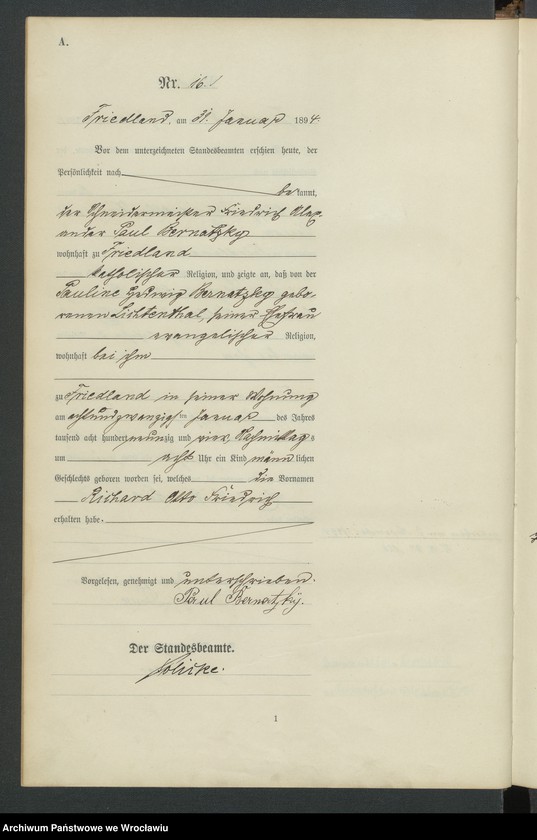 A.
Nr. 16.
Friedland, am 31. Januar 1894.
Vor dem unterzeichneten Standesbeamten erschien heute, der
Persönlichkeit nach
be kannt,
der Schneidermeister Friedrich Alex-
ander Paul Bernatzky
wohnhaft zu Friedland
katholischer Religion, und zeigte an, daß von der
Pauline Hedwig Bernatzky gebo-
renen Lichtenthal, seiner Ehefrau
evangelischer Religion,
wohnhaft bei ihm
zu Friedland in seiner Wohnung
am achtundzwanzigsten Januar des Jahres
tausend acht hundert neunzig und vier, Nachmittags
um acht Uhr ein Kind männlichen
Geschlechts geboren worden sei, welches die Vornamen
Richard Otto Friedrich
erhalten habe.
Vorgelesen, genehmigt und unterschrieben.
Paul Bernatzky.
Der Standesbeamte.
1
Archiwum Państwowe we Wrocławiu